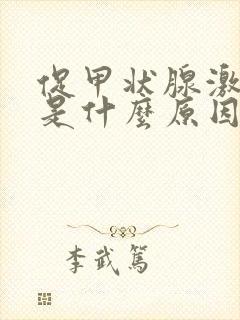 促甲状腺激
是什麼原因
李武篤